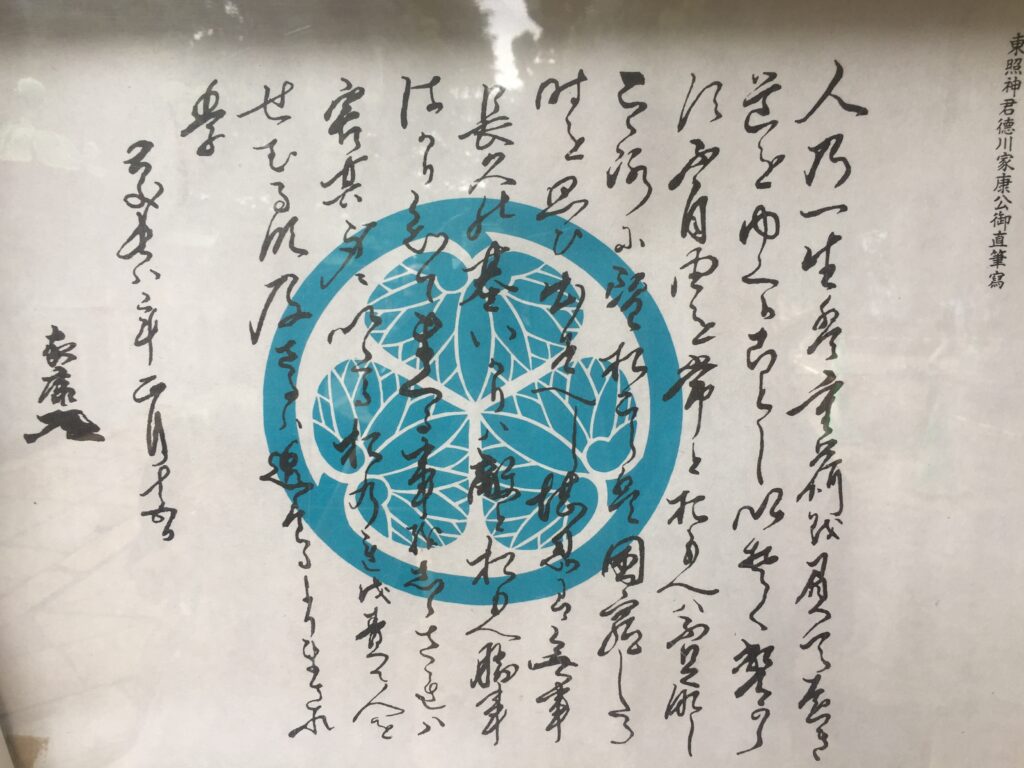 東照神君德川家康公御直筆寫
人乃一生盤重荷越負て遠き
道をゆくかことしいそくへから
須不自由を常とおもへハ不足那し
こゝろに望おこら盤困窮したる
時を思ひ出すへし堪忍は無事
長久の基いかりハ敵とおもへ勝事
はかり知てまくる事越志らされハ
害其身にいたるおのれ越責て人を
せむる那及さるハ過たるよりまされ
李
慶長八年正月十五日
家康